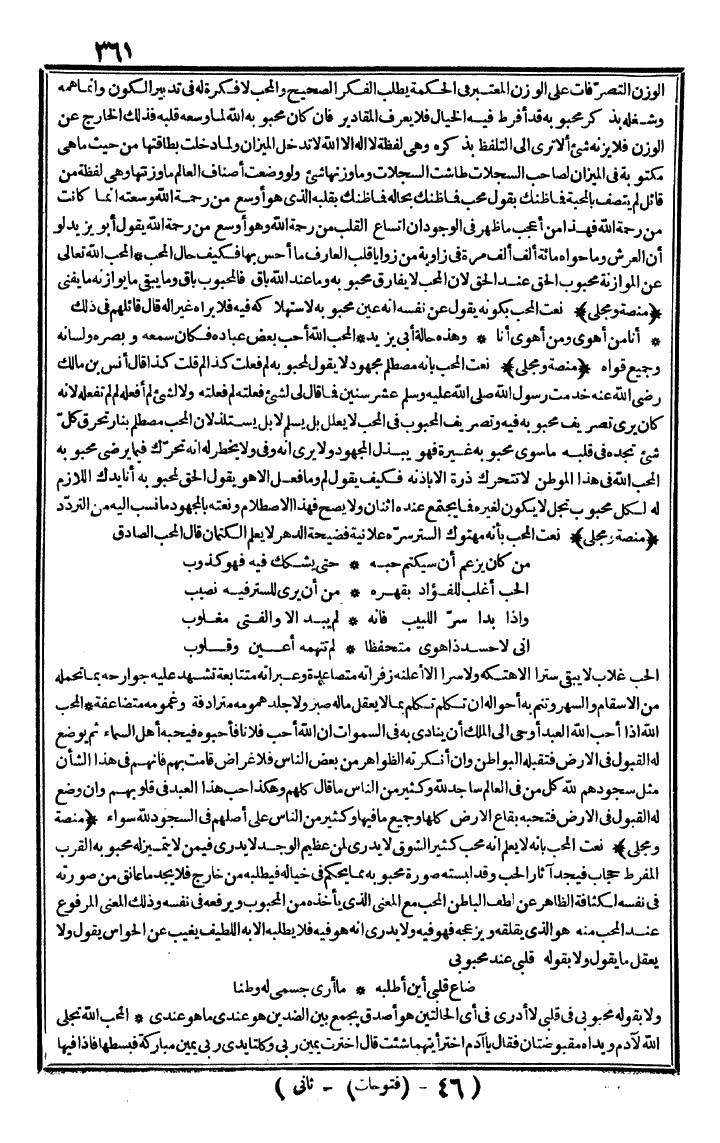 ٣٦١
الوزن التصرّفات على الوزن المعتبر فى الحكمة يطلب الفكر الصحيح والمحب لا فكرة له فى تدبير الكون وانما همه
وشغله بذكر محبوبه قد أفرط فيه الخيال فلا يعرف المقادير فان كان محبوبه الله لما وسعه قلبه فذلك الخارج عن
الوزن فلا يزنه شئ ألا ترى الى التلفظ بذكره وهى لفظة لا اله الا الله لا تدخل الميزان ولما دخلت بطاقتها من حيث ما هى
مكتوبة فى الميزان لصاحب السجلات طاشت السجلات وما وزنها شئ ولو وضعت أصناف العالم ما وزنتها وهى لفظة من
قائل لم يتصف بالمحبة فما ظنك بقول محب فما ظنك بحاله فما ظنك بقلبه الذى هو أوسع من رحمة الله وسعته انما كانت
من رحمة الله فهذا من أعجب ما ظهر فى الوجود ان اتساع القلب من رحمة الله وهو أوسع من رحمة الله يقول أبو يزيد لو
أن العرش وما حواه مائة ألف ألف مرة فى زاوية من زوايا قلب العارف ما أحس بها فكيف حال المحب * المحب الله تعالى
عن الموازنة محبوب الحق عند الحق لان المحب لا يفارق محبوبه وما عند الله باق فالمحبوب باق وما يبقى ما يوازنه ما يفنى
﴿منصة ومجلى﴾ نعت المحب بكونه يقول عن نفسه انه عين محبوبه لاستهلاكه فيه فلا يراه غير اله قال قائلهم فى ذلك
* أنا من أهوى ومن أهوى أنا * وهذه حالة أبى يزيد * المحب الله أحب بعض عباده فكان سمعه وبصره ولسانه
وجميع قواه ﴿منصة ومجلى﴾ نعت المحب بأنه مصطلم مجهود لا يقول لمحبوبه لم فعلت كذا لم قلت كذا قال أنس بن مالك
رضى الله عنه خدمت رسول الله صلى الله عليه وسلم عشر سنين فما قال لى لشئ فعلته لم فعلته ولا لشئ لم أفعله لم لم تفعله لانه
كان يرى تصريف محبوبه فيه وتصريف المحبوب فى المحب لا يعلل بل يسلم لا بل يستلذ لان المحب مصطلم بنار تحرق كلّ
شئ تجده فى قلبه ماسوى محبوبه غيرة فهو يبذل المجهود ولا يرى انه وفى ولا يخطر له انه تحرّك فيما يرضى محبوبه
المحب الله فى هذا الموطن لا تتحرك ذرة الا باذنه فكيف يقول لم وما فعل الا هو يقول الحق لمحبوبه أنا يدك اللازم
له لكل محبوب تجل لا يكون لغيره فما يجتمع عنده اثنان ولا يصح فهذا الاصطلام ونعته بالمجهود ما نسب اليه من التردّد
﴿منصة ومجلى﴾ نعت المحب بأنه مهتوك الستر سرّه علانية فضيحة الدهر لا يعلم الكتمان قال المحب الصادق
من كان يزعم أن سيكتم حبه * حتى يشكك فيه فهو كذوب
الحب أغلب للفؤاد بقهره * من أن يرى للستر فيه نصيب
واذا بدا سرّ اللبيب فانه * لم يبد الا والفتى مغلوب
انى لاحسد ذا هوى متحفظا * لم تتهمه أعين وقلوب
الحب غلاب لا يبقى سترا الا هتكه ولا سرا الا أعلنه زفراته متصاعدة وعبراته متتابعة تشهد عليه جوارحه بما تحمله
من الاسقام والسهر وتنم به أحواله ان تكلم تكلم بما لا يعقل ماله صبر ولا جلد همومه مترادفة وغمومه متضاعفة * المحب
الله اذا أحب الله العبد أوحى الى الملك أن ينادى به فى السموات ان الله أحب فلانا فأحبوه فيحبه أهل السماء ثم يوضع
له القبول فى الارض فتقبله البواطن وان أنكرته الظواهر من بعض الناس فلاغراض قامت بهم فانهم فى هذا الشأن
مثل سجودهم لله كل من فى العالم ساجد لله وكثير من الناس ما قال كلهم وهكذا حب هذا العبد فى قلوبهم وان وضع
له القبول فى الارض فتحبه بقاع الارض كلها وجميع ما فيها وكثير من الناس على أصلهم فى السجود لله سواء ﴿منصة
ومجلى﴾ نعت المحب بانه لا يعلم انه محب كثير الشوق لا يدرى لمن عظيم الوجد لا يدرى فيمن لا يتميز له محبوبه القرب
المفرط حجاب فيجد آثار الحب وقد البسته صورة محبوبه بما يحكم فى خياله فيطلبه من خارج فلا يجد ما عانق من صورته
فى نفسه لكثافة الظاهر عن لطف الباطن المحب مع المعنى الذى يأخذه من المحبوب ويرفعه فى نفسه وذلك المعنى المرفوع
عند المحب منه هو الذى يقلقه ويزعجه فهو فيه ولا يدرى انه هو فيه فلا يطلبه الا به اللطيف يغيب عن الحواس يقول ولا
يعقل ما يقول ولا بقوله قلبى عند محبوبى
ضاع قلبى أين أطلبه * ما أرى جسمى له وطنا
ولا بقوله محبوبى فى قلبى لا أدرى فى أى الحالتين هو أصدق يجمع بين الضدين هو عندى ما هو عندى * المحب الله تجلى
الله لآدم ويداه مقبوضتان فقال يا آدم اختر أيتهما شئت قال اخترت يمين ربى وكلتا يدى ربى يمين مباركة فبسطها فاذا فيها
( ٤٦ - (فتوحات) - ثانى )